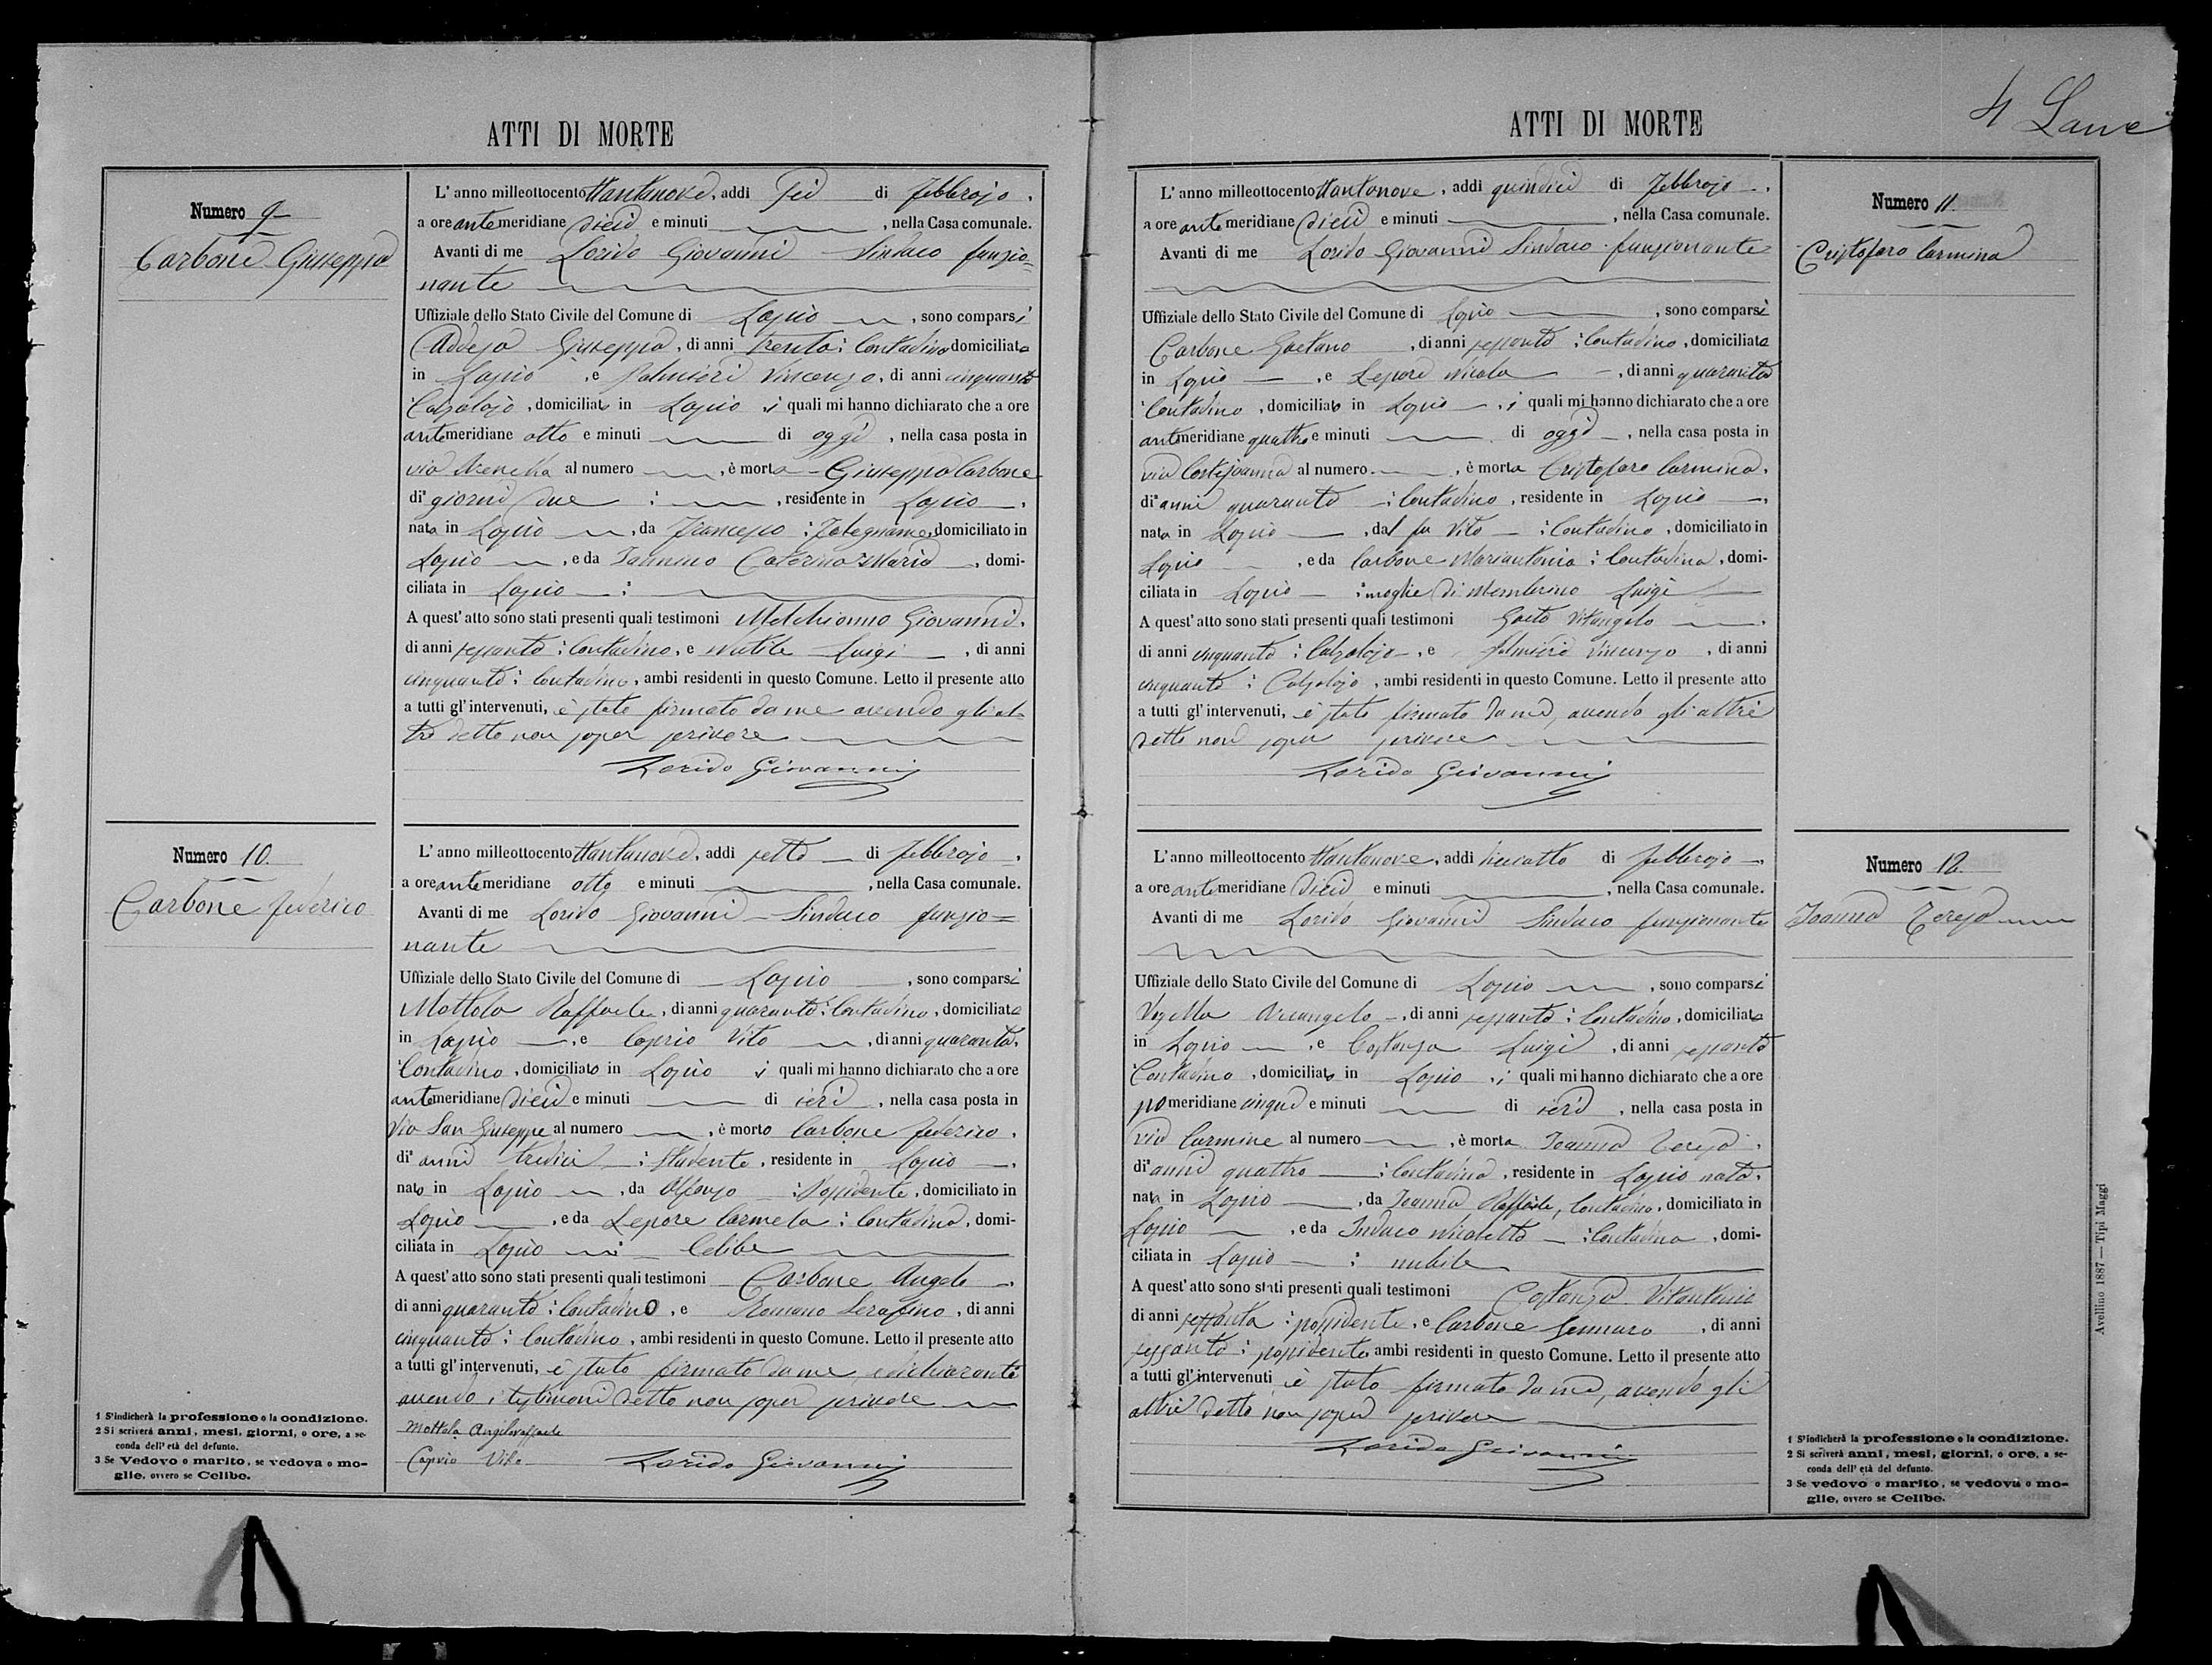 ATTI DI MORTE
Numero 9
Carbone Giuseppa
L'anno milleottocento ttantanove, addi sei di febbrajo.
a ore antemeridiane dieci e minuti , nella Casa comunale.
Avanti di me Lorido Giovanni Sindaco funzio=
nante
Uffiziale dello Stato Civile del Comune di Lapio , sono comparsi
Addeja Giuseppa, di anni trenta: Contadino domiciliata
in Lapio , e Palmieri Vincenzo, di anni cinquanta
Calzolajo, domiciliato in Lapio , i quali mi hanno dichiarato che a ore
antemeridiane otto e minuti di oggi , nella casa posta in
via al numero , è morta Giuseppa Carbone
di giorni due : , residente in Lapio .
nata in Lapio , da Francesco : Falegname, domiciliato in
Lapio , e da Iannino Caterina Maria , domi-
ciliata in Lapio :
A quest'atto sono stati presenti quali testimoni Melchionno Giovanni,
di anni sessanta : Contadino, e Mutile Luigi , di anni
cinquanta : Contadino, ambi residenti in questo Comune. Letto il presente atto
a tutti gl'intervenuti, è stato firmato da me avendo gli al-
tri detto non saper scrivere
Lorido Giovanni
Numero 10.
Carbone Federico
L'anno milleottocento ttantanove, addi sette di febbrajo .
a ore antemeridiane otto e minuti , nella Casa comunale.
Avanti di me Lorido Giovanni Sindaco funzio=
nante
Uffiziale dello Stato Civile del Comune di Lapio , sono comparsi
Mottola Raffaele, di anni quaranta: Contadino, domiciliata
in Lapio , e Caprio Vito , di anni quaranta.
Contadino, domiciliato in Lapio i quali mi hanno dichiarato che a ore
antemeridiane dieci e minuti di ieri , nella casa posta in
Via San Giuseppe al numero , è morto Carbone Federico.
di anni tredici : Studente, residente in Lapio .
nato in Lapio , da Alfonzo : Possidente, domiciliato in
Lapio , e da Lepore Carmela : Contadina, domi-
ciliata in Lapio : Celibe
A quest'atto sono stati presenti quali testimoni Carbone Angelo .
di anni quaranta : Contadino, e Romano Serafino, di anni
cinquanta : Contadino, ambi residenti in questo Comune. Letto il presente atto
a tutti gl'intervenuti, è stato firmato da me, e dichiaranti
avendo i testimoni detto non saper scrivere
Mottola Angeloraffaele
Caprio Vito Lorido Giovanni
1 S'indicherà la professione o la condizione.
2 Si scriverà anni, mesi, giorni, o ore, a se-
conda dell'età del defunto.
3 Se Vedovo o marito, se vedova o mo-
glie, ovvero se Celibe.
ATTI DI MORTE
4
Numero 11.
Cristofaro Carmina
L'anno milleottocento ttantanove, addi quindici di febbrajo .
a ore antemeridiane dieci e minuti , nella Casa comunale.
Avanti di me Lorido Giovanni Sindaco funzionante
Uffiziale dello Stato Civile del Comune di Lapio , sono comparsi
Carbone Gaetano , di anni sessanta : Contadino, domiciliata
in Lapio , e Lepore Nicola , di anni quaranta
Contadino, domiciliato in Lapio , i quali mi hanno dichiarato che a ore
antemeridiane quattro e minuti di oggi , nella casa posta in
via Cortejoanna al numero , è morta Cristofaro Carmina.
di anni quaranta : Contadino, residente in Lapio .
nata in Lapio , dal fu Vito : Contadino, domiciliato in
Lapio , e da Carbone Mariantonia : Contadina, domi-
ciliata in Lapio : moglie di Membrino Luigi
A quest'atto sono stati presenti quali testimoni Gaeta Vitangelo .
di anni cinquanta : Calzolajo , e Palmieri Vincenzo , di anni
cinquanta : Calzolajo , ambi residenti in questo Comune. Letto il presente atto
a tutti gl'intervenuti, è stato firmato da me, avendo gli altri
detto non saper scrivere
Lorido Giovanni
Numero 12.
Ioanna Teresa
L'anno milleottocento ttantanove, addi diciotto di febbrajo .
a ore antemeridiane dieci e minuti , nella Casa comunale.
Avanti di me Lorido Giovanni Sindaco funzionante
Uffiziale dello Stato Civile del Comune di Lapio , sono comparsi
Arcangelo , di anni sessanta : Contadino, domiciliata
in Lapio , e Costanza Luigi , di anni sessanta
Contadino, domiciliato in Lapio , i quali mi hanno dichiarato che a ore
pomeridiane cinque e minuti di ieri , nella casa posta in
via Carmine al numero , è morta Ioanna Teresa .
di anni quattro : Contadina, residente in Lapio nata.
nata in Lapio , da Ioanna Raffaele, Contadino, domiciliato in
Lapio , e da Indaco Nicoletta : Contadina , domi-
ciliata in Lapio : nubile
A quest'atto sono stati presenti quali testimoni Costanza Vitantonio
di anni settanta : possidente, e Carbone Gennaro , di anni
sessanta : possidente, ambi residenti in questo Comune. Letto il presente atto
a tutti gl'intervenuti è stato firmato da me, avendo gli
altri detto non saper scrivere
Lorido Giovanni
1 S'indicherà la professione o la condizione.
2 Si scriverà anni, mesi, giorni, o ore, a se-
conda dell'età del defunto.
3 Se vedovo o marito, se vedova o mo-
glie, ovvero se Celibe.
Avellino 1887 — Tipi Maggi